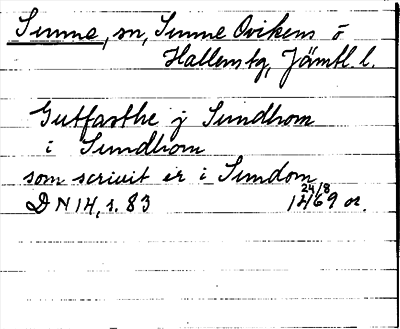 Sunne, sn, Sunne Ovikens ö
Hallens tg, Jämtl. l.
Gutfasthe j Sundhom
i Sundhom
som scriuit er i Sundom
24/8
DN 14, s. 83 1469 or.